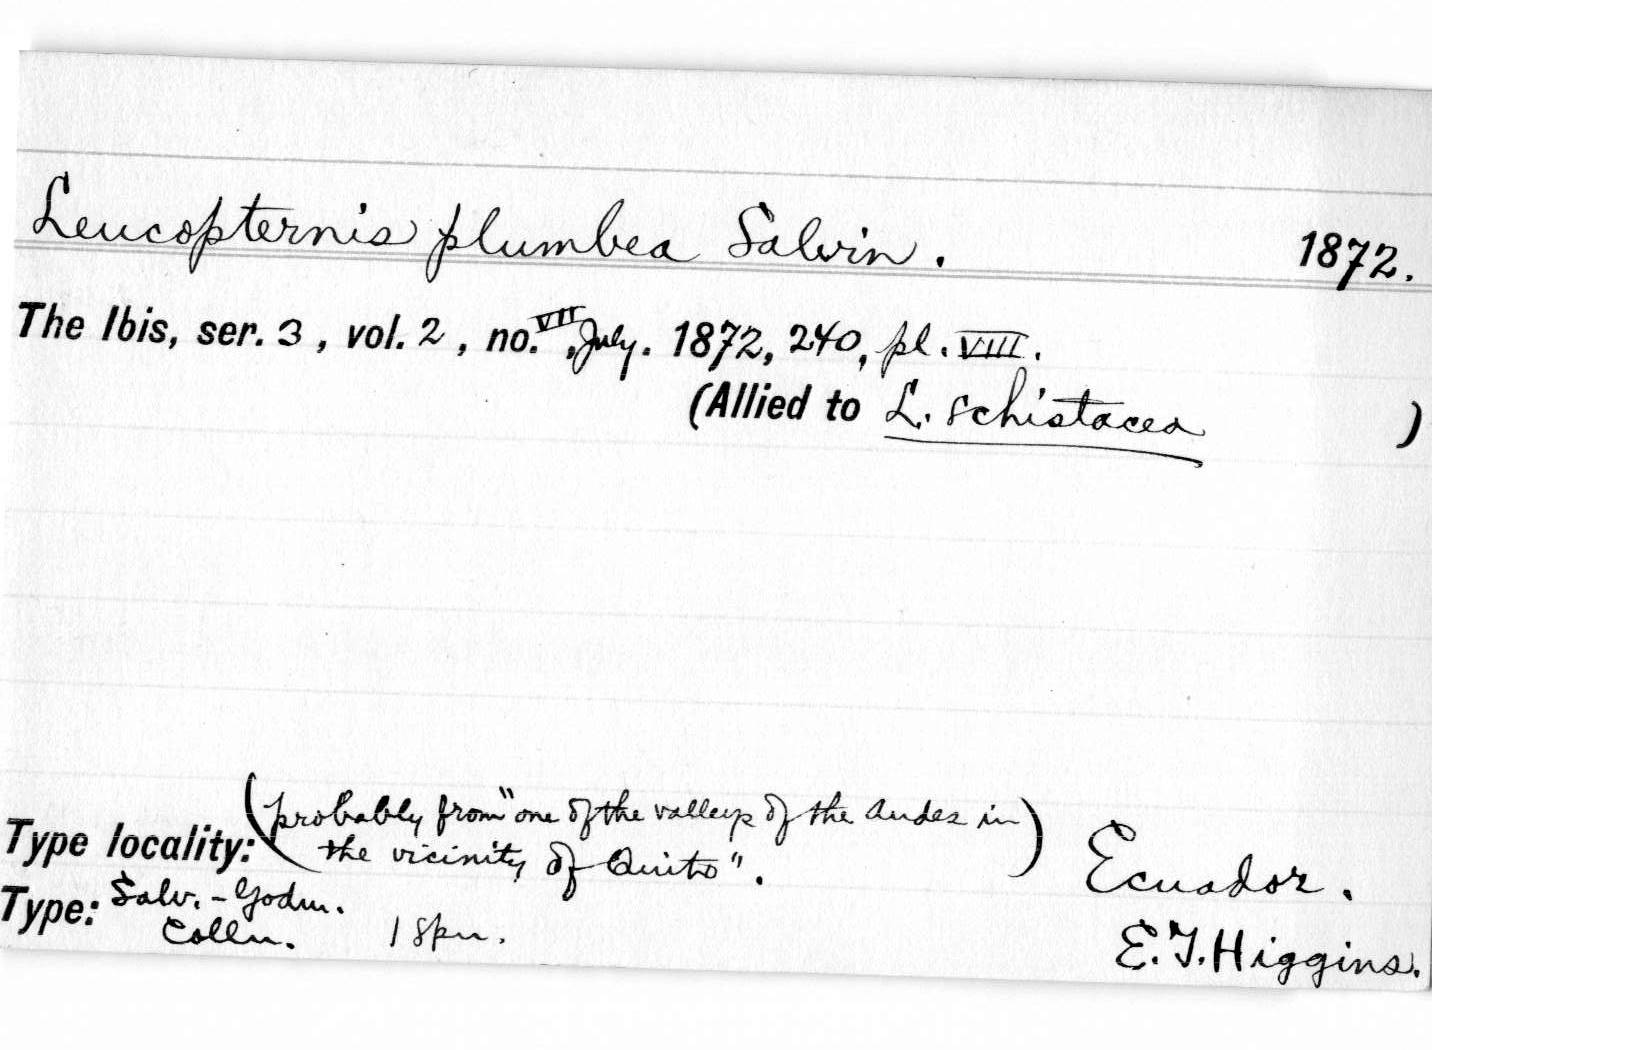 Leucopternis plumbea Salvin. 1872.
The Ibis, ser. 3, vol. 2, no. VII, July. 1872, 240, pl. VIII.
(Allied to L. schistacea )
(probably from "one of the valleys of the Andes in
Type locality: the vicinity of Quito". ) Ecuador.
Type: Salv.-Godm.
Colln. 1 spn. E.T. Higgins.